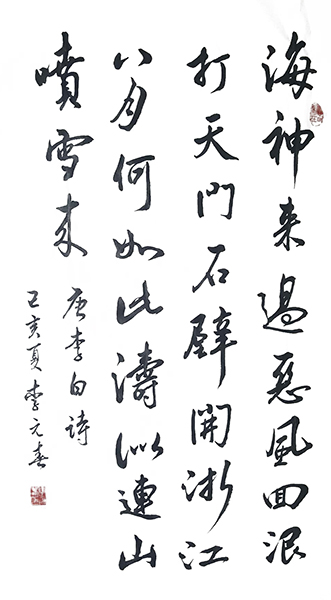 海神来過惡風回浪
打天門石壁開浙江
八月何如此濤似連山
噴雪来
唐李白詩
己亥夏李元春